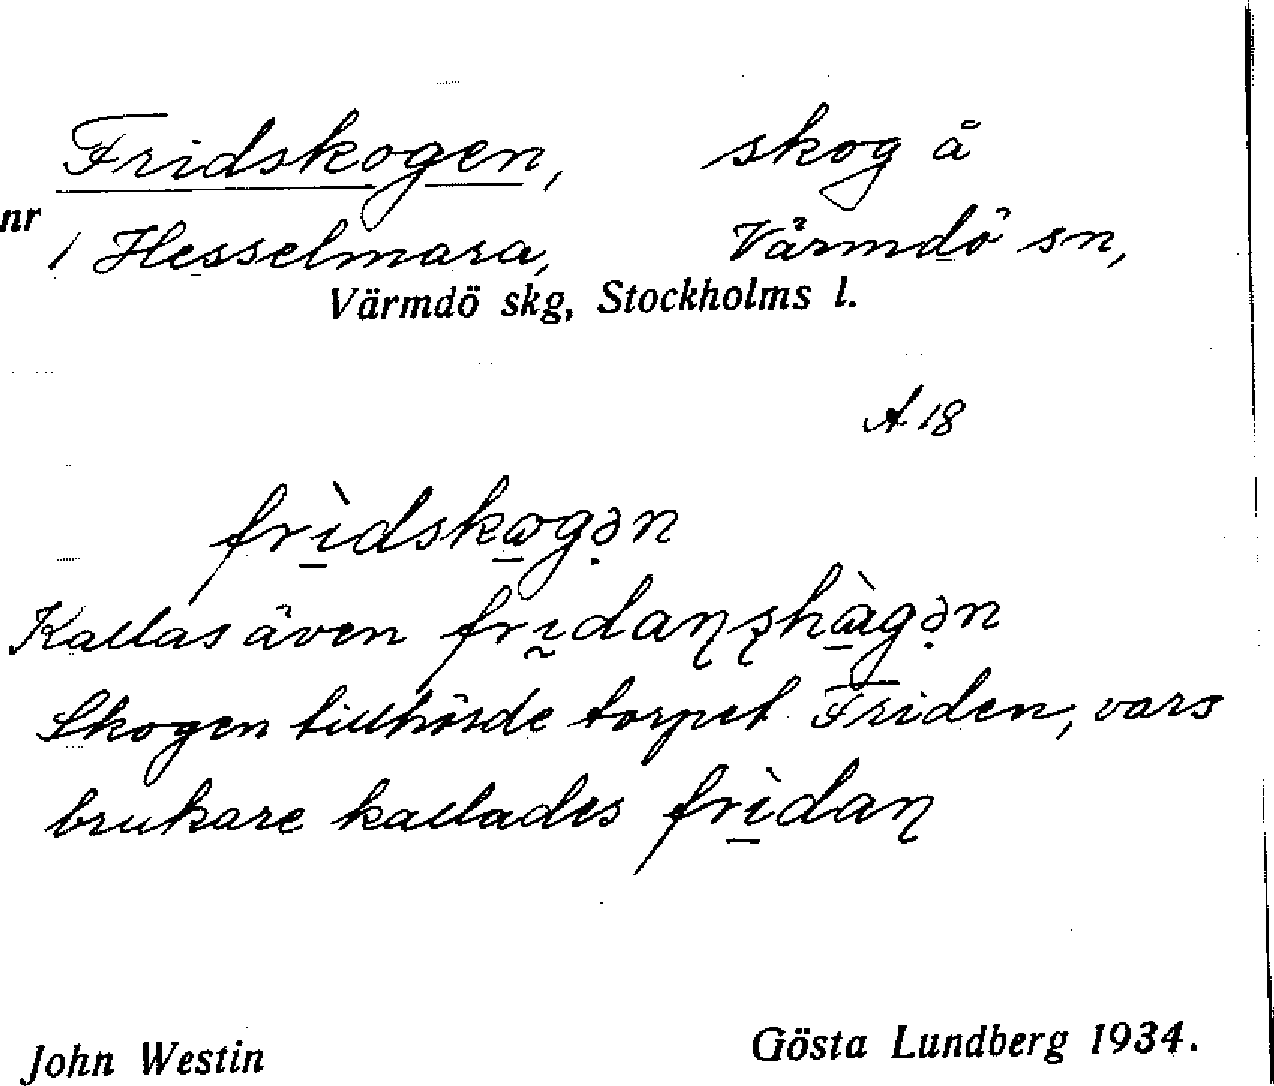 Fridskogen, skog å
nr 1 Hesselmara, Värmdö sn,
Värmdö skg, Stockholms l.
A 18
frìdskωgə̣n
Kallas även frḭdaɳʂhàgə̣n
Skogen tillhörde torpet Friden, vars
brukare kallades frìdaɳ
John Westin Gösta Lundberg 1934.